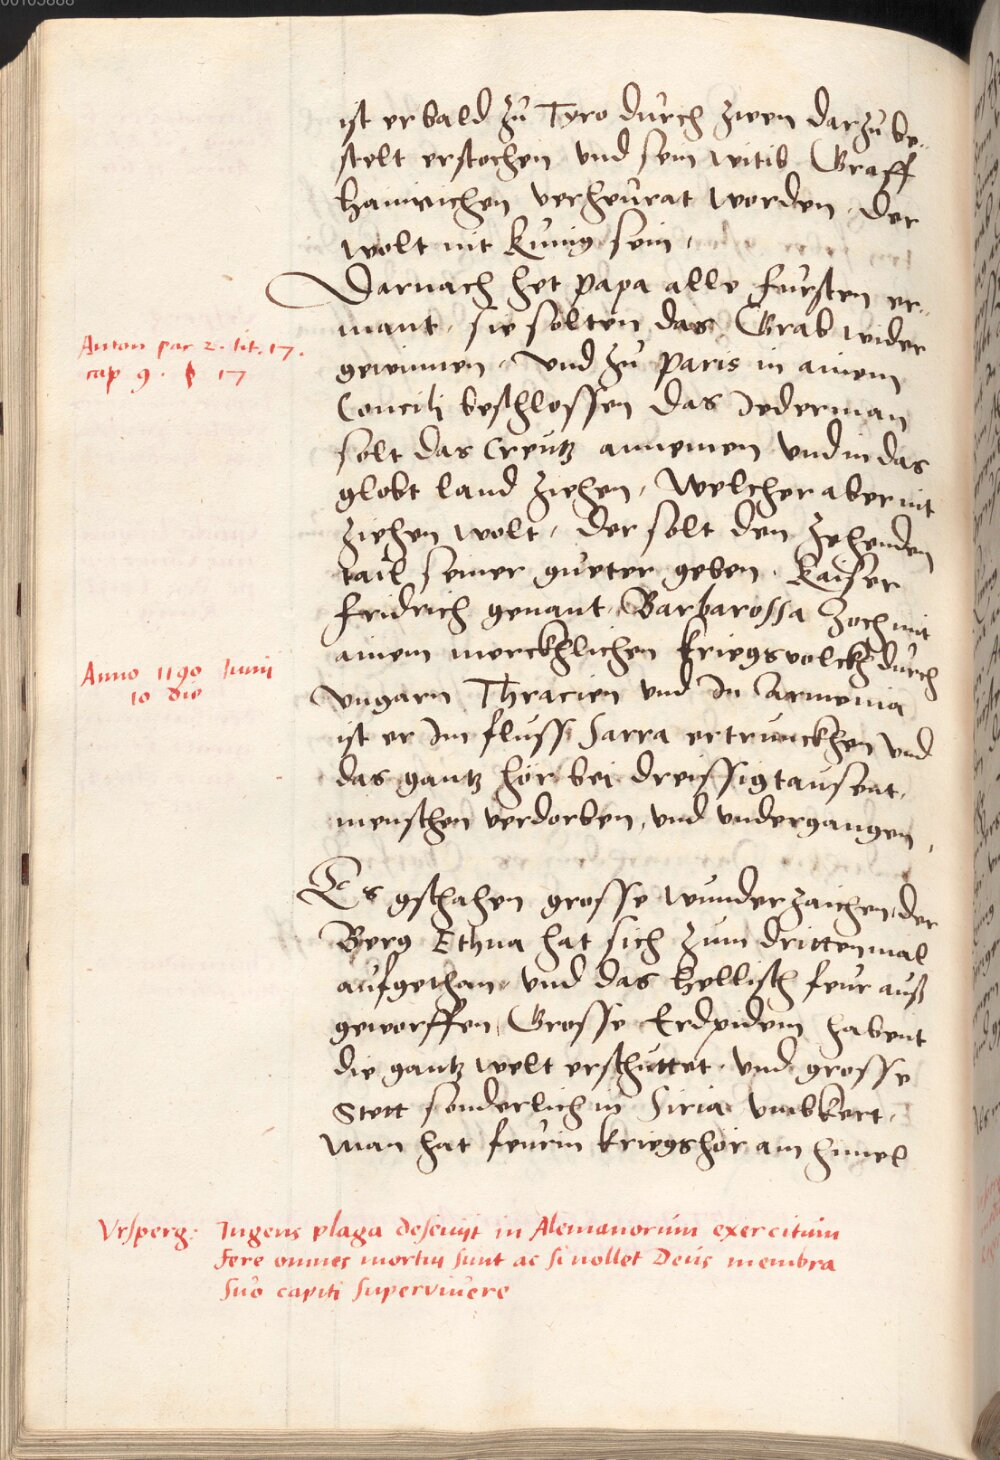 ist er bald zu Tyro durch zwen darzu be-
stelt erstochen vnd sein witib Graff
Hainrichen verheurat worden, der
wolt nit Kunig sein,
Darnach het papa alle fürsten er-
mant, sie solten das Grab wider
gewinnen, Vnd zu Paris in ainem
Concilj beschlossen das Jederman
solt das Creutz annemen vnd in das
globt land ziehen, Welcher aber nit
ziehen wolt, der solt den zehenden
tail seiner gueter geben, Kaiser
Fridrich genant Barbarossa Zoch mit
ainem merckhlichen kriegsvolckh durch
Vngarn Thracien vnd In Armenia
ist er Im fluss Sarra ertrunckhen vnd
das gantz hör bei dreissigtausent
menschen verdorben, vnd vndergangen,
Es gschahen grosse wunderzaichen, der
Berg Ethna hat sich zum drittenmal
aufgethan, vnd das hellisch feur auß
geworffen, Grosse Erdpidem habent
die gantz welt erschuttet, vnd grosse
Stett sonderlich in Siria vmbkert,
Man hat feurin kriegshör am himel
Anton par 2. tit. 17.
cap 9. § 17
Anno 1190 Junij
10 die
Vrsperg: Ingens plaga deseuijt in Alemanorum exercitum
fere omnes mortui sunt ac si nollet Deus membra
suo capiti superviuere